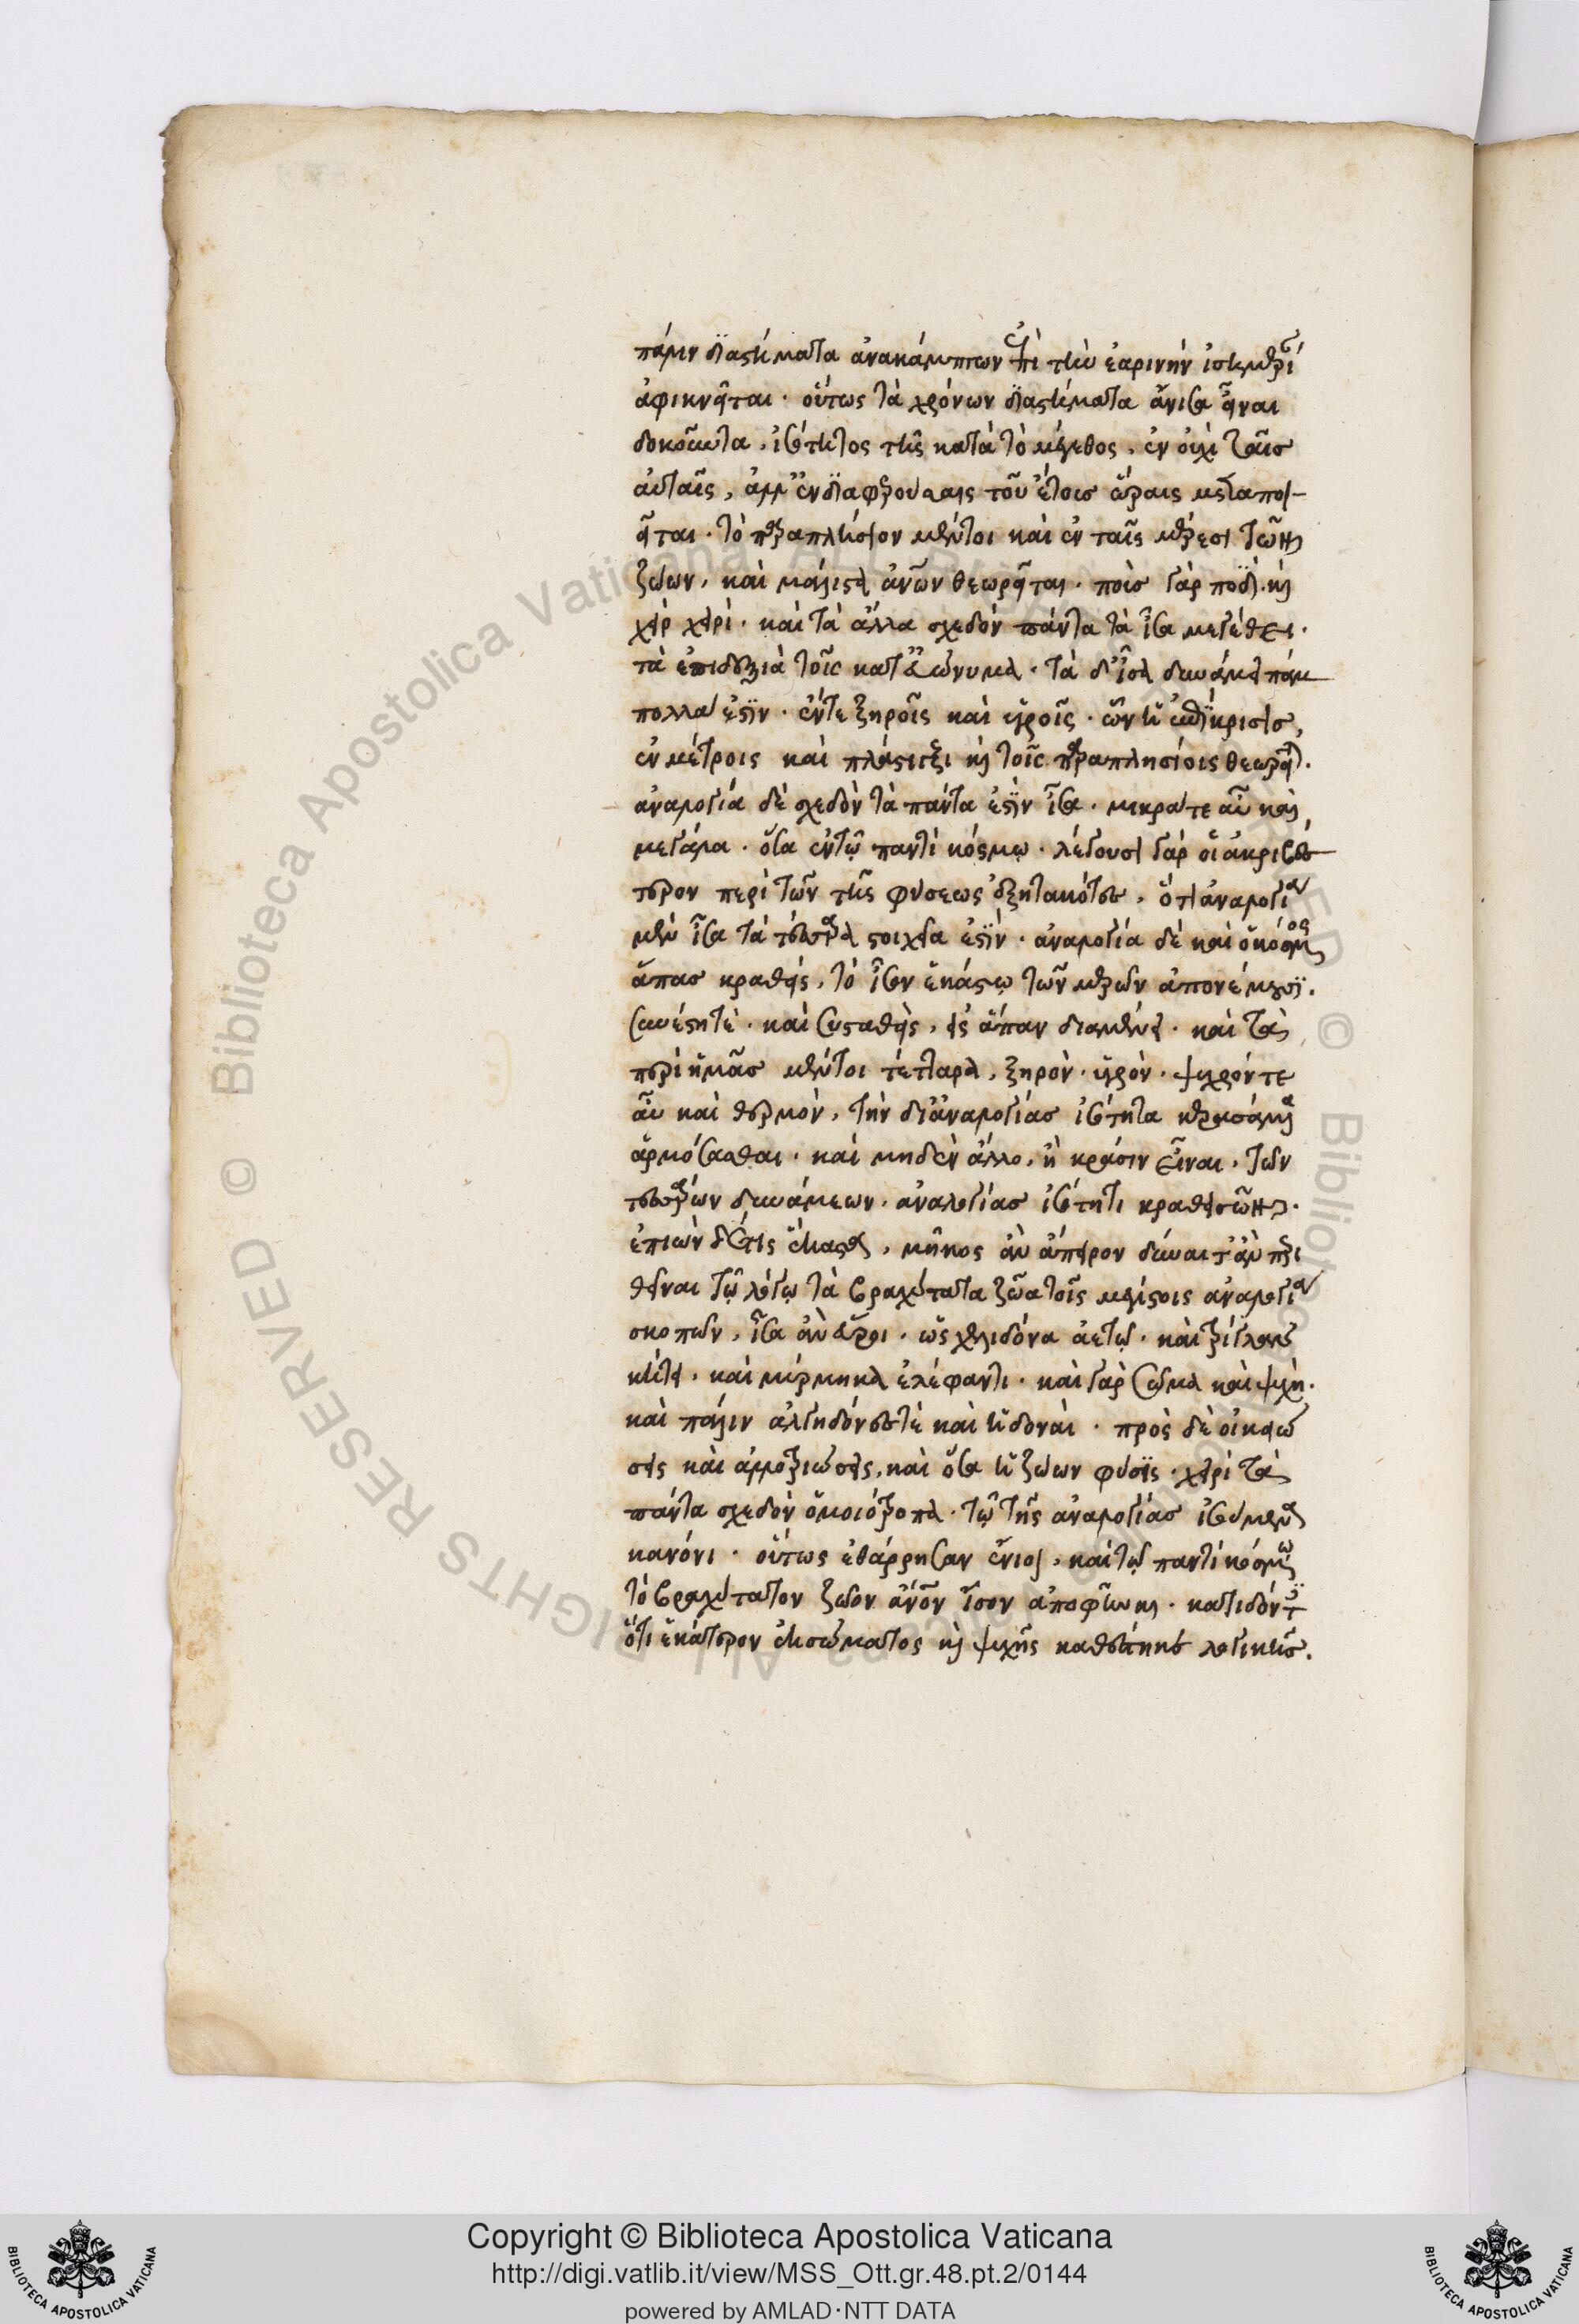 πάλιν διαστήματα ἀνακάμπτων ἐπὶ τὴν ἐαρινὴν ἰσημερί
ἀφικνῆται · οὕτως τὰ χρόνων διαστήματα ἄνισα εἶναι
δοκοῦντα, ἰσότητος τῆς κατὰ τὸ μέγεθος, ἐν οὐχὶ ταῖς
αὐταῖς, ἀλλ' ἐν διαφερούσαις τοῦ ἔτους ὥραις μεταποι-
εῖται · τὸ παραπλήσιον μέντοι καὶ ἐν ταῖς μέρεσι τῶν
ζώων, καὶ μάλιστα ἀνων θεωρεῖται · ποὺς γὰρ ποδὶ · καὶ
χεὶρ χειρὶ · καὶ τὰ ἄλλα σχεδὸν πάντα τὰ ἶσα μεγέθει ·
τὰ ἐπιδεξιὰ τοῖς κατ' εὐώνυμα · τὰ δ' ἶσα δυνάμει πάμ
πολλά ἐστιν · ἔν τε ξηροῖς καὶ ὑγροῖς · ὧν ἡ ἐπίκρισις,
ἐν μέτροις καὶ πλάστιγξι καὶ τοῖς παραπλησίοις θεωρεῖται.
ἀναλογία δὲ σχεδὸν τὰ πάντα ἐστὶν ἶσα · μικρά τε αὖ καὶ
μεγάλα · ὅσα ἐν τῷ παντὶ κόσμῳ · λέγουσι γὰρ οἱ ἀκριβέσ
τερον περὶ τῶν τῆς φύσεως ἐξητακότες, ὅτι ἀναλογία
μὲν ἶσα τὰ τέσσαρα στοιχεῖα ἐστὶν · ἀναλογία δὲ καὶ ὁ κόσμος
ἅπας κραθεὶς, τὸ ἶσον ἑκάστῳ τῶν μερῶν ἀπονέμουσι.
συνέστη τὲ · καὶ συσταθεὶς, εἰς ἅπαν διαμένει · καὶ τὰ
περὶ ἡμᾶς μέντοι τέτταρα, ξηρὸν · ὑγρὸν · ψυχρόν τε
αὖ καὶ θερμὸν, τὴν δι' ἀναλογίας ἰσότητα κερασάμενα
ἁρμόσασθαι · καὶ μηδὲν ἄλλο, ἢ κράσιν εἶναι · τῶν
τεσσάρων δυνάμεων · ἀναλογίας ἰσότητι κραθεισῶν ·
ἐπιὼν δέ τις ἕκαστα, μῆκος ἂν ἄπειρον δύναιτ' ἂν περι
θεῖναι τῷ λόγῳ τὰ βραχύτατα ζῶα τοῖς μεγίστοις ἀναλογία
σκοπῶν, ἶσα ἂν εὕροι · ὡς χελιδόνα ἀετῷ · καὶ τρίγλαν
κήτει · καὶ μύρμηκα ἐλέφαντι · καὶ γὰρ σῶμα καὶ ψυχὴ ·
καὶ πάλιν ἀλγηδόνες τὲ καὶ ἡδοναὶ · πρὸς δὲ οἰκειώ
σεις καὶ ἀλλοτριώσεις, καὶ ὅσα ἡ ζώων φύσις · χειρὶ τὰ
πάντα σχεδὸν ὁμοιότροπα · τῷ τῆς ἀναλογίας ἰσούμενα
κανόνι · οὕτως ἐθάρρησαν ἔνιοι, καὶ τῷ παντὶ κόσμῳ
τὸ βραχύτατον ζῶον ἀνον ἶσον ἀποφῆναι · κατιδόντες
ὅτι ἑκάτερον ἐκ σώματος καὶ ψυχῆς καθέστηκε λογικῆς.
Copyright © Biblioteca Apostolica Vaticana
http://digi.vatlib.it/view/MSS_Ott.gr.48.pt.2/0144
powered by AMLAD·NTT DATA